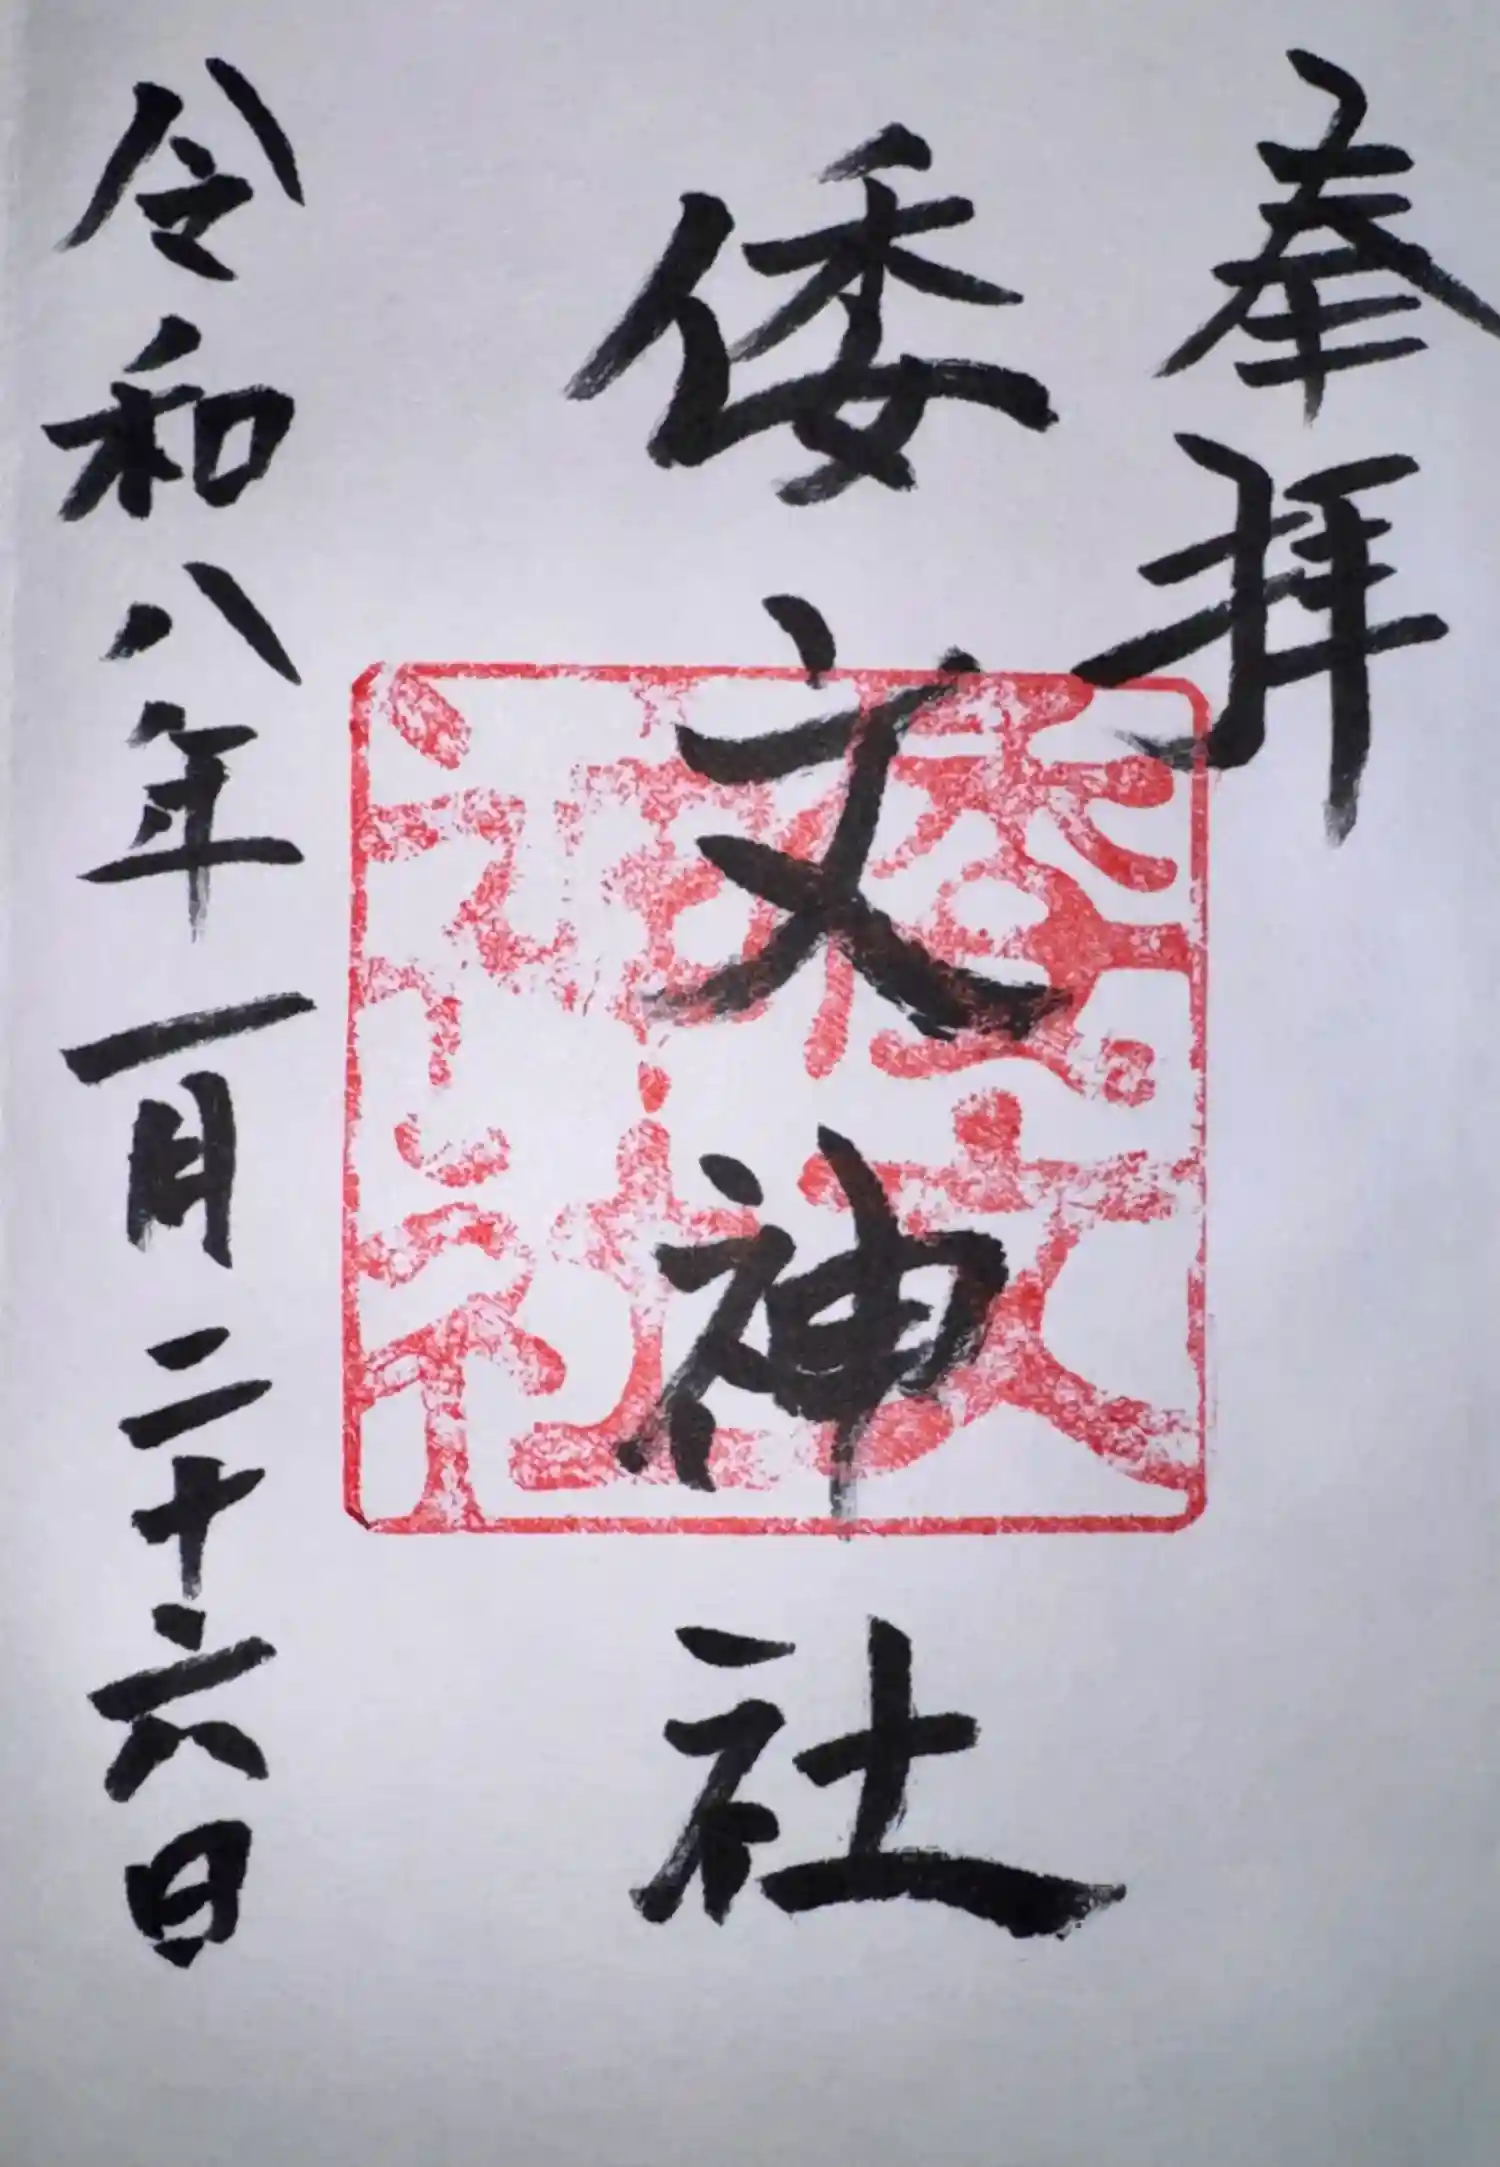 奉拝
倭文神社
倭文神社
令和八年一月二十六日